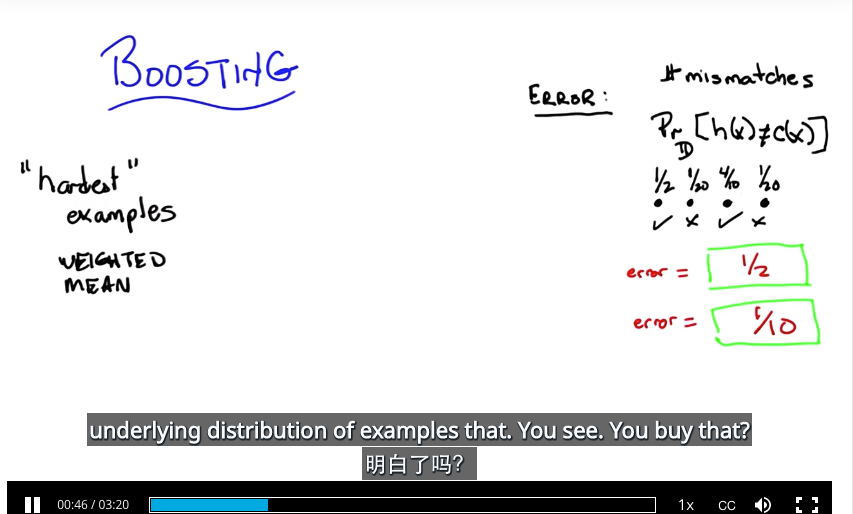 BOOSTING
"hardest"
examples
WEIGHTED
MEAN
# mismatches
ERROR:
Pr_D [h(x)≠c(x)]
1/2 1/20 4/10 1/20
✓ x ✓ x
error = 1/2
error = 1/10
underlying distribution of examples that. You see. You buy that?
明白了吗?
00:46 / 03:20
1x CC